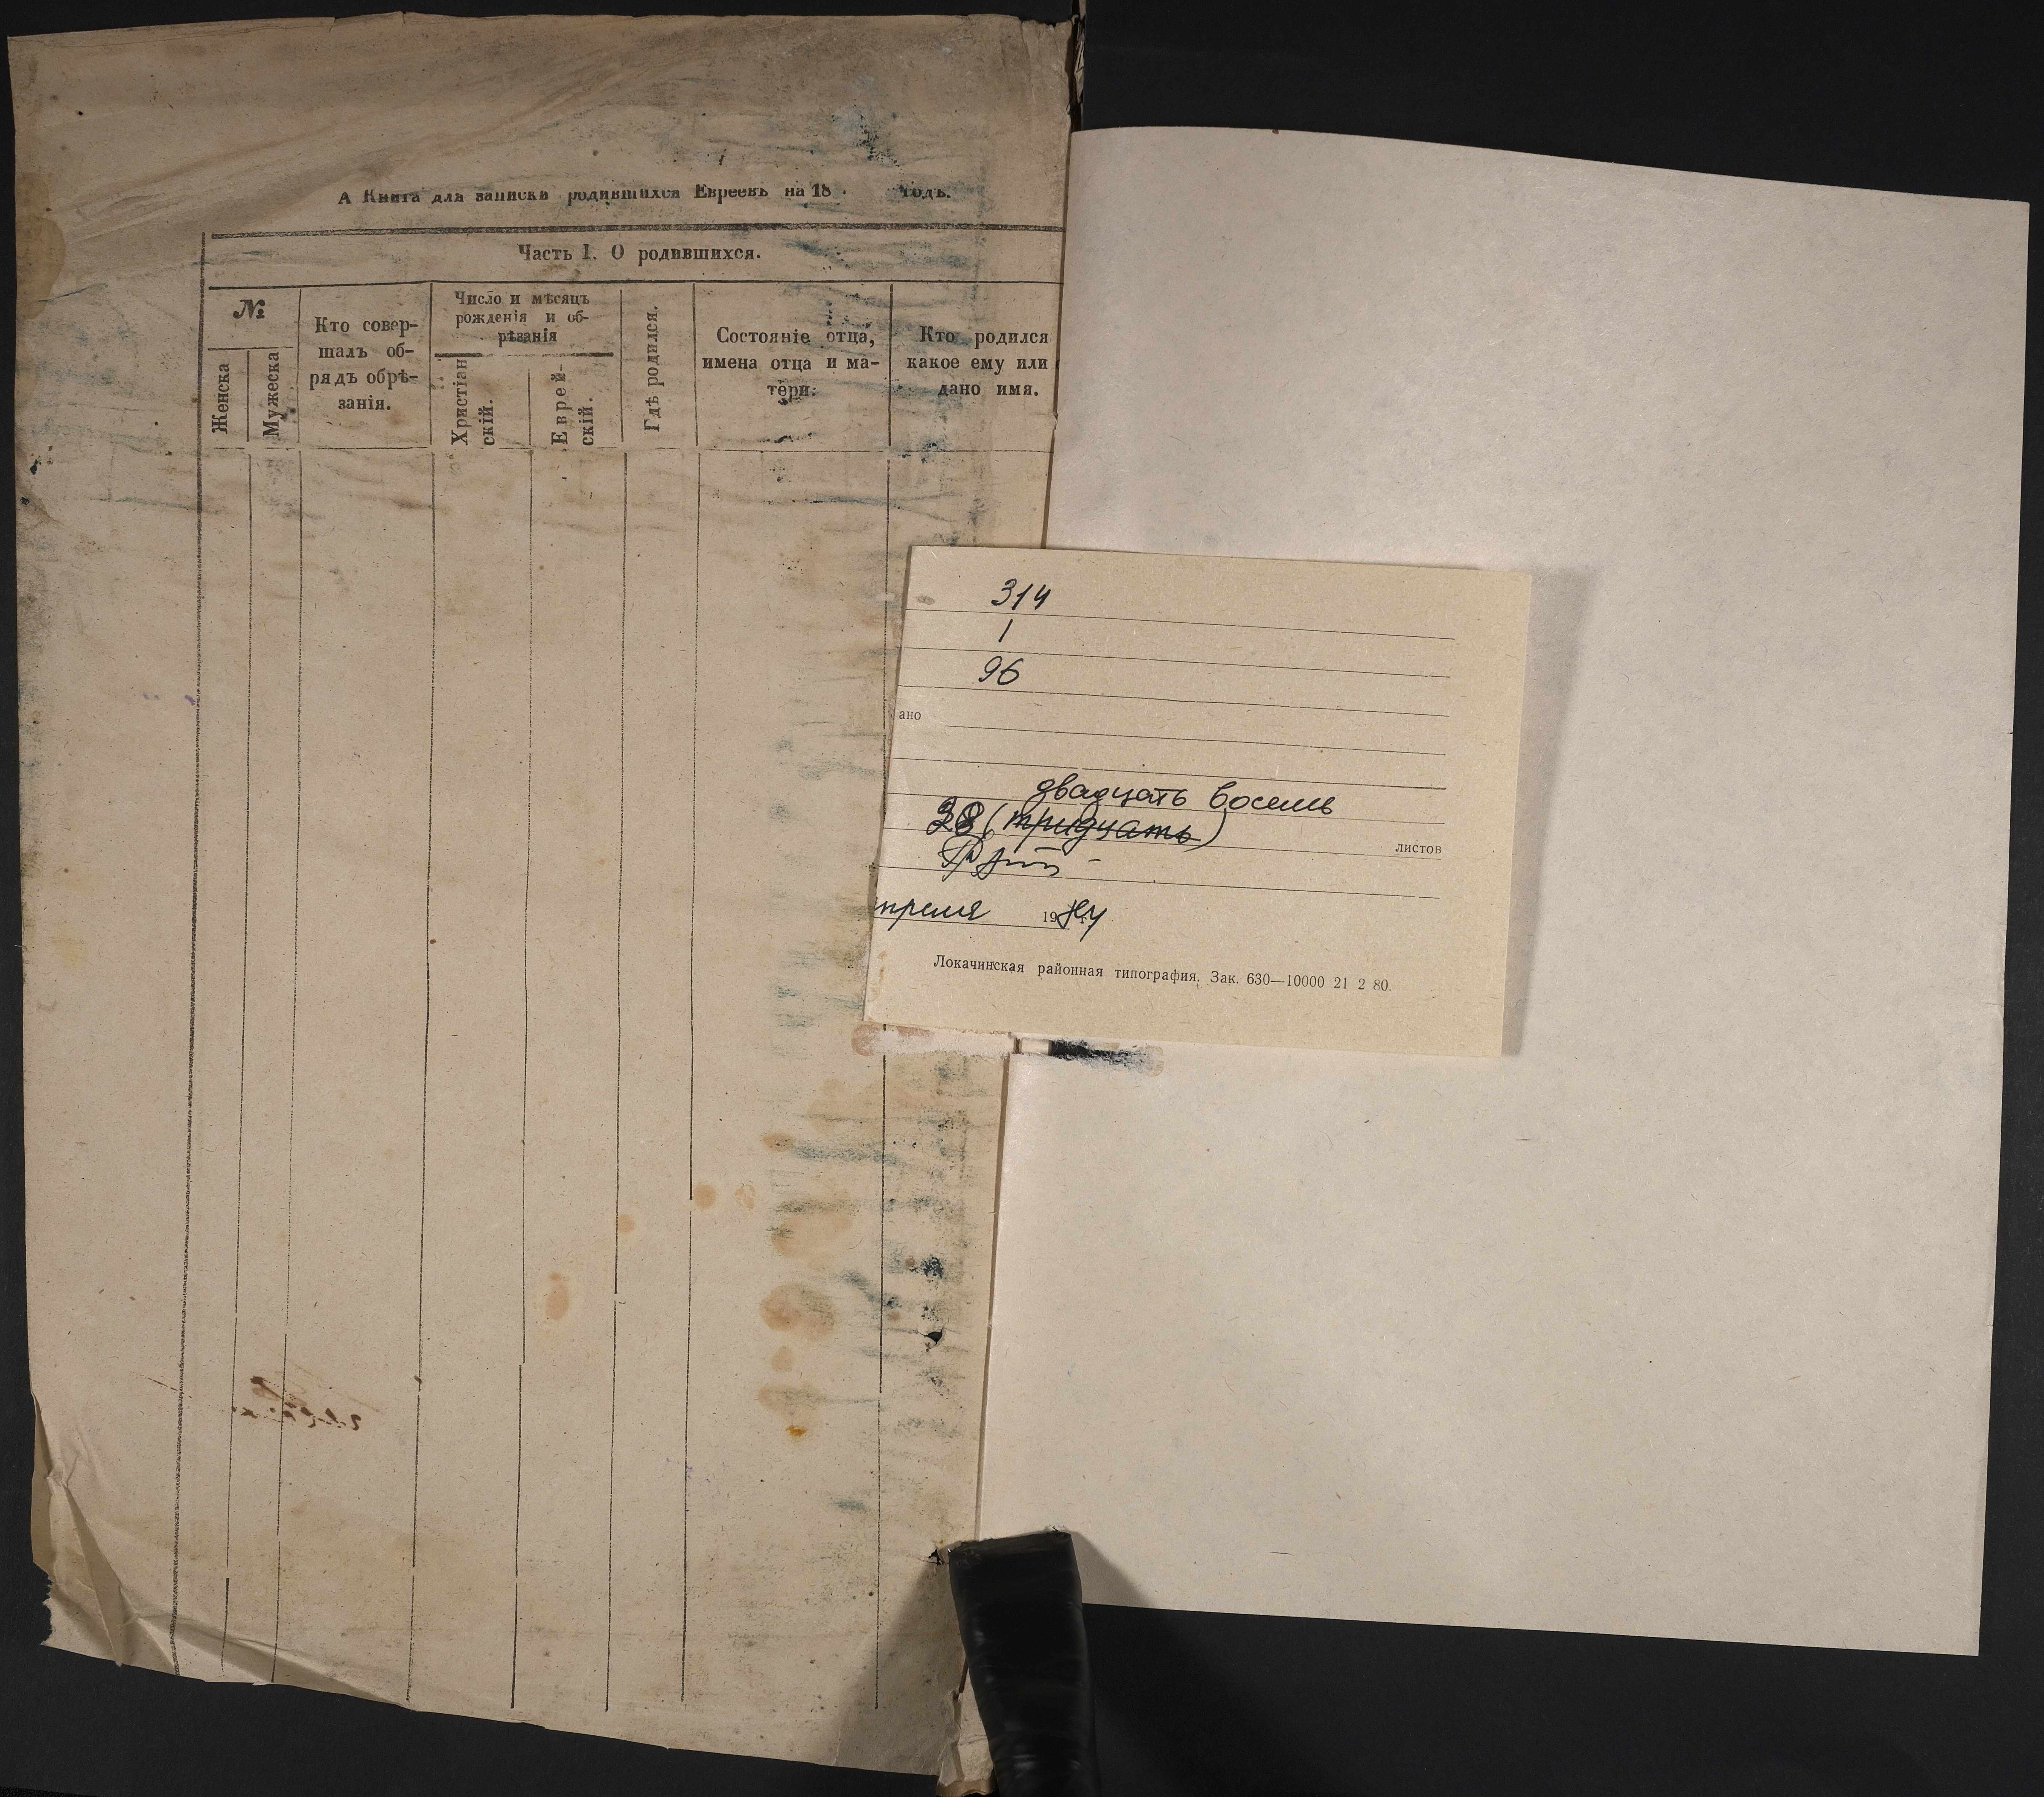 А Книга для записки родившихся Евреевъ на 18 годъ.
Часть I. О родившихся.
№
Женска
Мужеска
Кто совер-
шалъ об-
рядъ обрѣ-
занія.
Число и мѣсяцъ
рожденія и об-
рѣзанія
Христіан
скій.
Еврей-
скій.
Гдѣ родился.
Состояніе отца,
имена отца и ма-
тери.
Кто родился
какое ему или
дано имя.
314
1
96
ано
двадцать восемь
28 (тридцать)
листов
преля 1984
Локачинская районная типография. Зак. 630—10000 21 2 80.